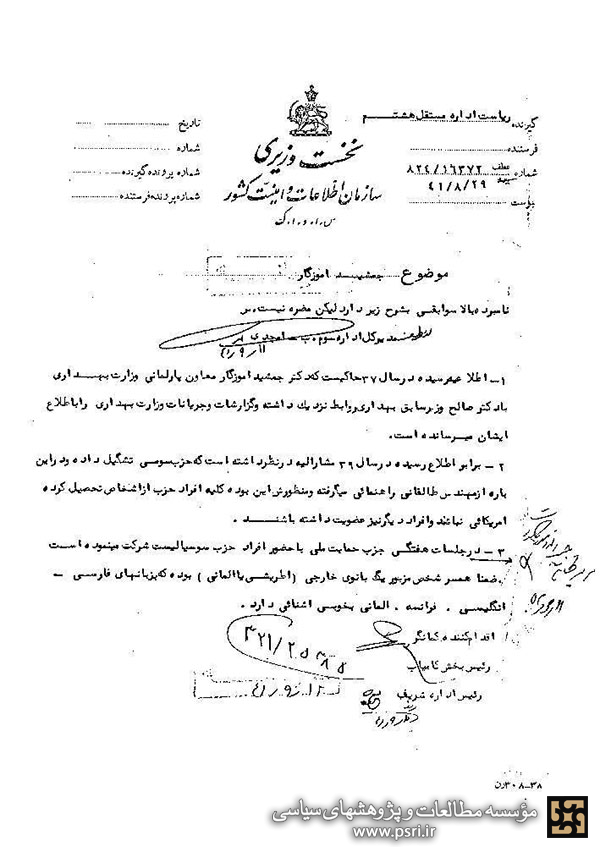 گیرنده ریاست اداره مستقل هشتم
فرستنده
شماره ۸۲۴/۱۶۳۷۲
۴۱/۸/۲۹
پیوست
تاریخ
شماره
شماره پرونده گیرنده
شماره پرونده فرستنده
نخست وزیری
سازمان اطلاعات و امنیت کشور
س.ا.و.ا.ک
موضوع جمشید اموزگار
نامبرده بالا سوابقی بشرح زیر دارد لیکن مضره نیست.
۱- اطلاعیه رسیده در سال ۳۷ حاکیست که دکتر جمشید اموزگار معاون پارلمانی وزارت بهداری
با دکتر صالح وزیر سابق بهداری روابط نزدیک داشته و گزارشات و جریانات وزارت بهداری را باطلاع
ایشان میرسانده است.
۲- برابر اطلاع رسیده در سال ۳۹ مشارالیه در نظر داشته است که حزب سومی تشکیل داده و در این
باره از مهندس طالقانی راهنمائی میگرفته و منظورش این بوده کلیه افراد حزب از اشخاص تحصیل کرده
امریکائی نباشند و افراد دیگر نیز عضویت داشته باشند.
۳- در جلسات هفتگی حزب حمایت ملی با حضور افراد حزب سوسیالیست شرکت مینموده است
ضمنا همسر شخص مزبور یک بانوی خارجی (اطریشی یا المانی) بوده که بزبانهای فارسی -
انگلیسی. فرانسه. المانی بخوبی اشنائی دارد.
اقدام کننده کمانگر
رئیس بخش کامیاب
رئیس اداره شریف
۳۸-۳۰۸زن
مؤسسه مطالعات و پژوهشهای سیاسی
www.psri.ir